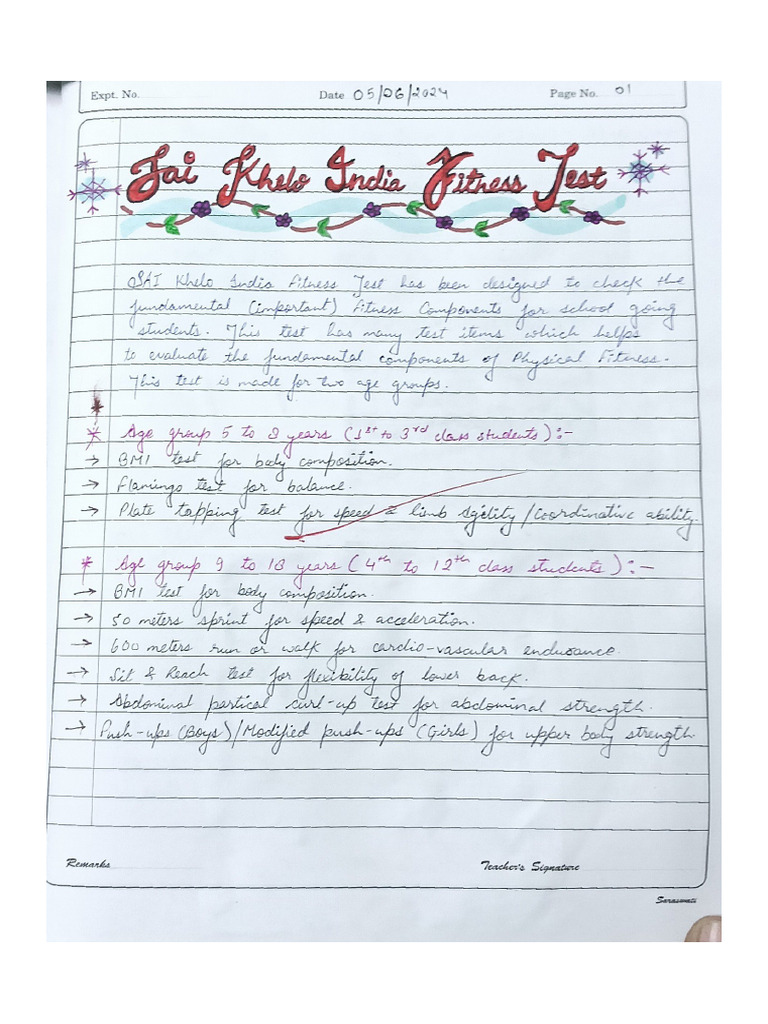 Expt. No. Date 05/06/2024 Page No. 01
Sai Khelo India Fitness Test
SAI Khelo India Fitness Test has been designed to check the
fundamental (important) Fitness Components for school going
students. This test has many test items which helps
to evaluate the fundamental components of Physical Fitness.
This test is made for two age groups.
* Age group 5 to 8 years (1st to 3rd class students):-
→ BMI test for body composition.
→ Flamingo test for balance.
→ Plate tapping test for speed & limb Agility/Coordinative ability.
* Age group 9 to 18 years (4th to 12th class students):-
→ BMI test for body composition.
→ 50 meters sprint for speed & acceleration.
→ 600 meters run or walk for cardio-vascular endurance.
→ Sit & Reach test for flexibility of lower back.
→ Abdominal partical curl-up test for abdominal strength.
→ Push-ups (Boys)/Modified push-ups (Girls) for upper body strength.
Remarks Teacher's Signature
Saraswati